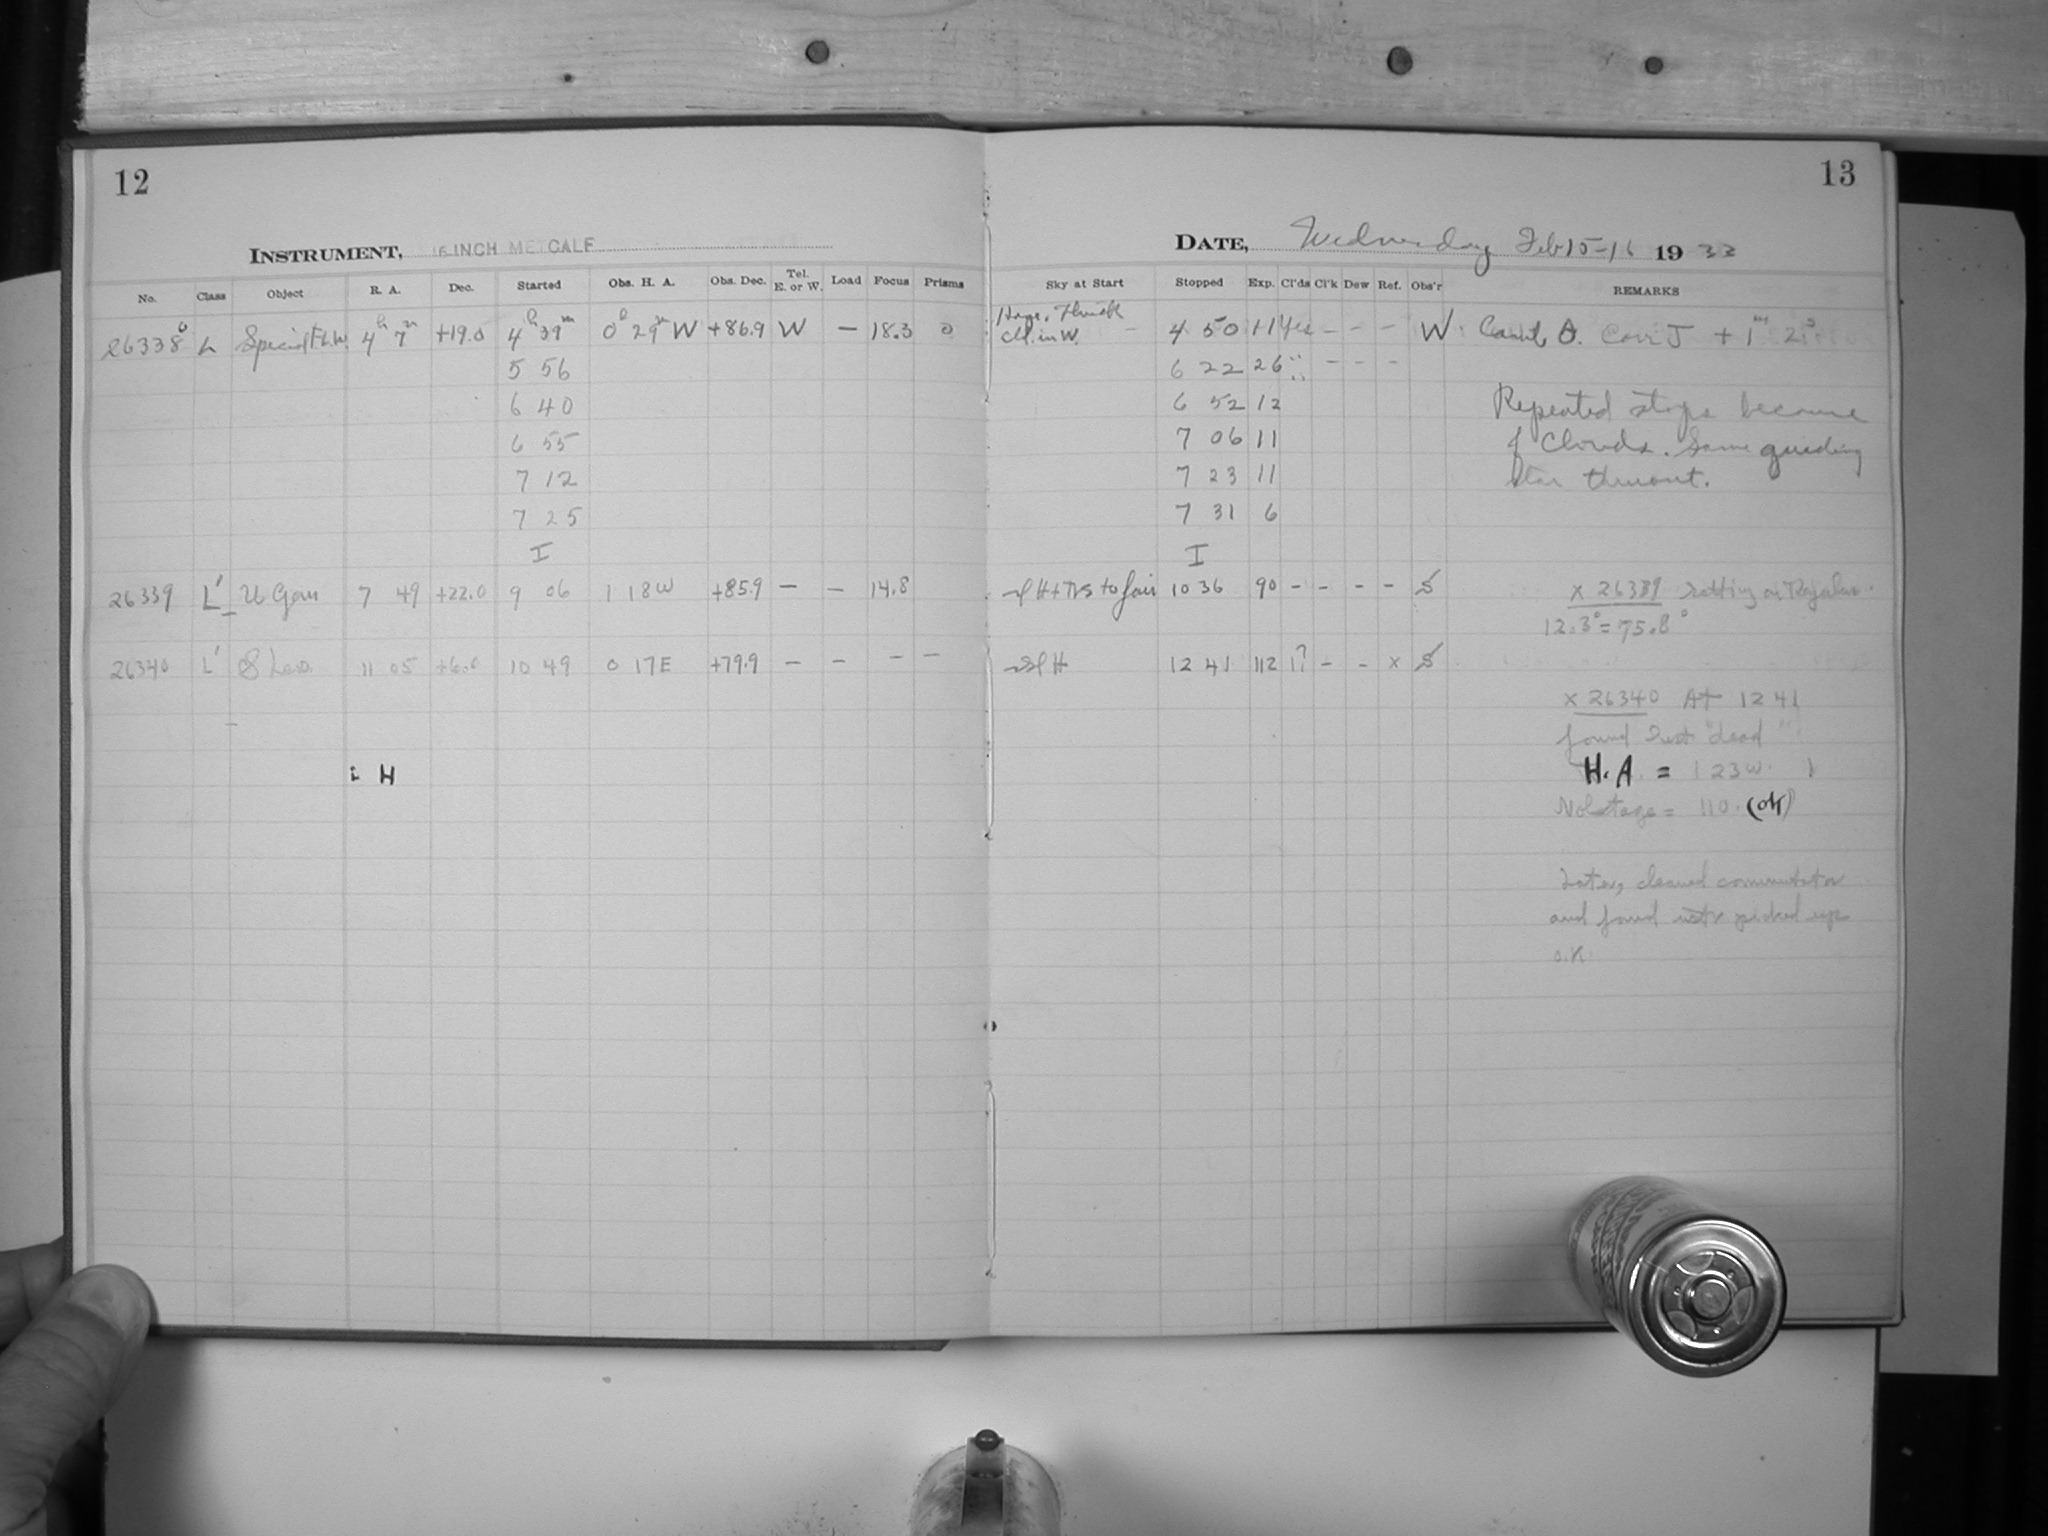 12
INSTRUMENT, 16 INCH METCALF
No. Class Object R. A. Dec. Started Obs. H. A. Obs. Dec. Tel. E. or W. Load Focus Prisms
26338 L Special 4h 7m +19.0 4h 39m 0h 29m W +86.9 W — 18.3 0
5 56
6 40
6 55
7 12
7 25
I
26339 L' U Gem 7 49 +22.0 9 06 1 18W +85.9 — — 14.8
26340 L' S Leo 11 05 +6.0 10 49 0 17E +79.9 — — — —
: H
13
DATE, Wednesday Feb 15-16 1933
Sky at Start Stopped Exp. Cl'ds Cl'k Dew Ref. Obs'r REMARKS
Haze, Thick
cl. in W. 4 50 11 Yes - - - W Camb O. Corr J + 1m 2s
6 22 26 - - -
6 52 12
7 06 11
7 23 11
7 31 6
I
Repeated stops because
of Clouds. Same guiding
star thruout.
H + TVS to fair 10 36 90 - - - - S
x 26339 Setting on Regulus.
12.3° = 75.8°
H 12 41 112 1? - - x S
x 26340 At 12 41
found inst "dead"
H.A. = 1 23W.
Voltage = 110. (ok)
Later, cleaned commutator
and found instr picked up
o.K.